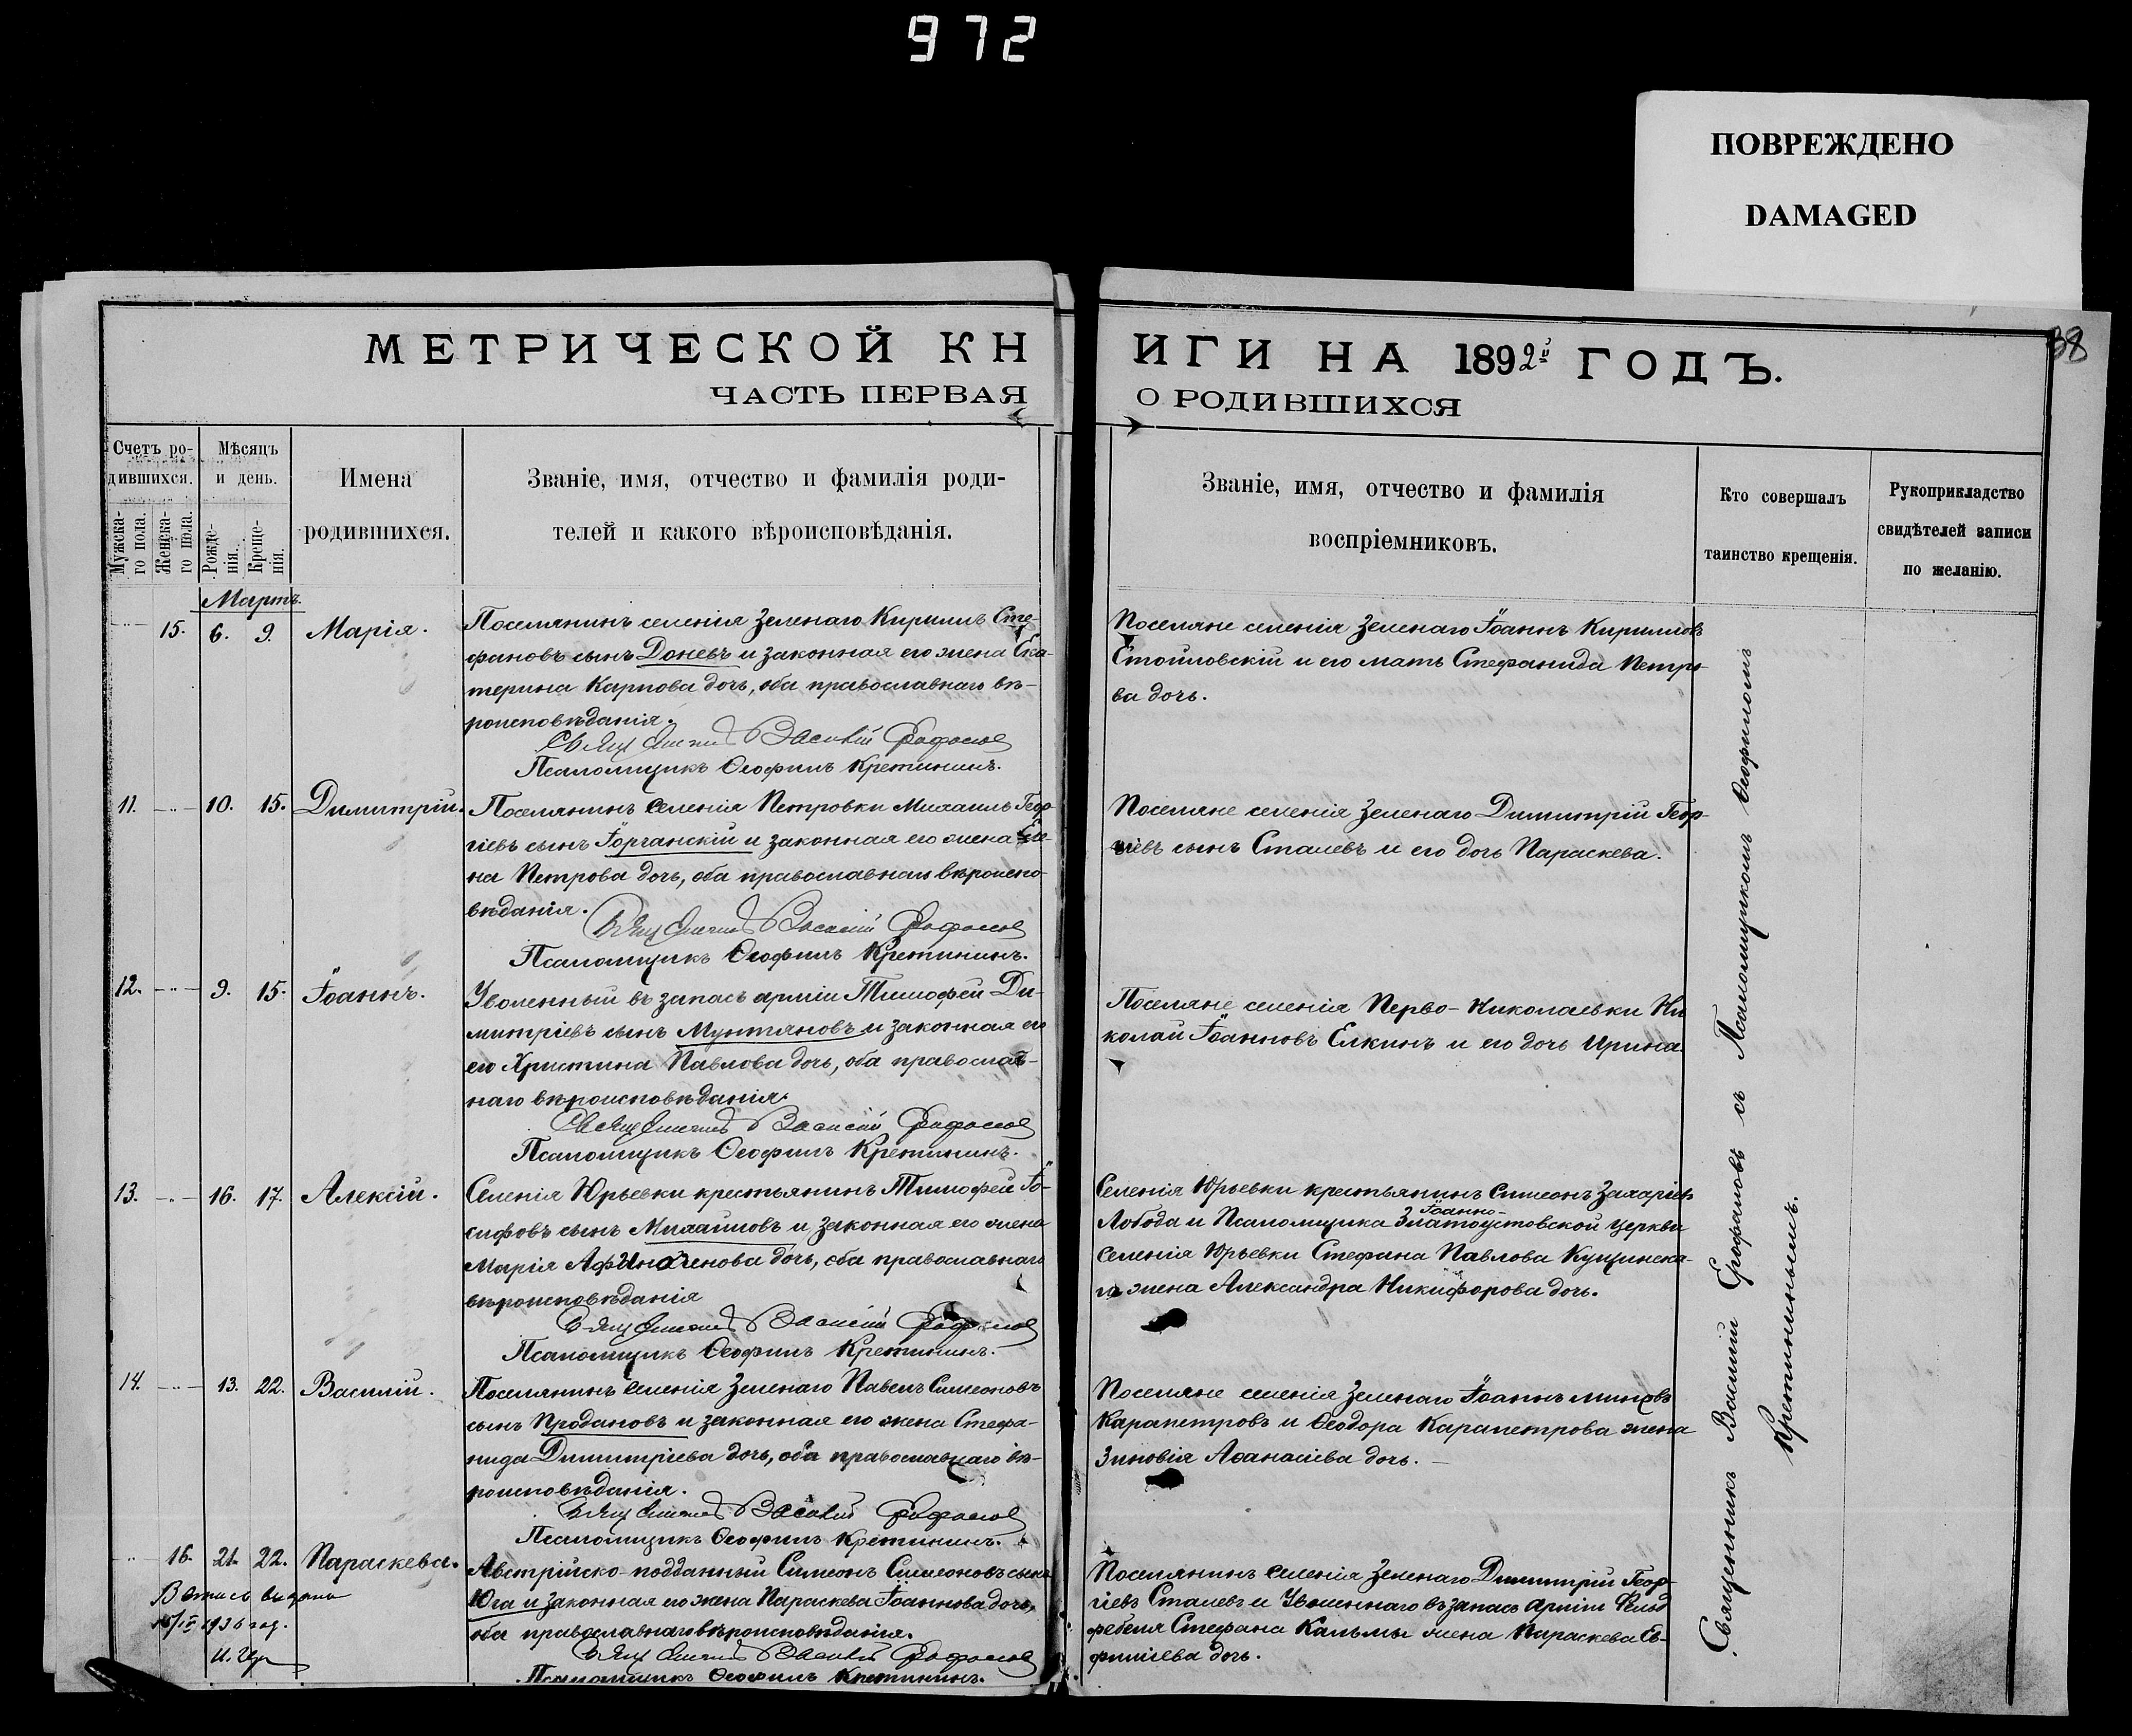 972
ПОВРЕЖДЕНО
DAMAGED
38
МЕТРИЧЕСКОЙ КН
ИГИ НА 1892й ГОДЪ.
ЧАСТЬ ПЕРВАЯ
О РОДИВШИХСЯ
Счетъ ро-
дившихся.
Мужска-
го пола.
Женска-
го пола.
Мѣсяцъ
и день.
Рожде-
нія.
Креще-
нія.
Имена
родившихся.
Званіе, имя, отчество и фамилія роди-
телей и какого вѣроисповѣданія.
Званіе, имя, отчество и фамилія
воспріемниковъ.
Кто совершалъ
таинство крещенія.
Рукоприкладство
свидѣтелей записи
по желанію.
Мартъ.
15. 6. 9. Марія.
Поселянинъ селенія Зеленаго Кириллъ Сте-
фановъ сынъ Доневъ и законная его жена Ека-
терина Карпова дочь, оба православнаго вѣ-
роисповѣданія.
Священникъ Василій Ерофаловъ
Псаломщикъ Ѳеофилъ Кретининъ.
Поселяне селенія Зеленаго Іоаннъ Кирилловъ
Стоиловскій и его мать Стефанида Петро-
ва дочь.
11. 10. 15. Димитрій.
Поселянинъ селенія Петровки Михаилъ Геор-
гіевъ сынъ Іорганскій и законная его жена Еле-
на Петрова дочь, оба православнаго вѣроиспо-
вѣданія.
Священникъ Василій Ерофаловъ
Псаломщикъ Ѳеофилъ Кретининъ.
Поселяне селенія Зеленаго Димитрій Геор-
гіевъ сынъ Сталевъ и его дочь Параскева.
12. 9. 15. Іоаннъ.
Уволенный въ запасъ арміи Тимофей Ди-
митріевъ сынъ Мунтяновъ и законная его
его Христина Павлова дочь, оба православ-
наго вѣроисповѣданія.
Священникъ Василій Ерофаловъ
Псаломщикъ Ѳеофилъ Кретининъ.
Поселяне селенія Перво-Николаевки Ни
колай Іоанновъ Елкинъ и его дочь Ирина.
13. 16. 17. Алексій.
Селенія Юрьевки крестьянинъ Тимофей Іо-
сифовъ сынъ Михаиловъ и законная его жена
Марія Афиногенова дочь, оба православнаго
вѣроисповѣданія
Священникъ Василій Ерофаловъ
Псаломщикъ Ѳеофилъ Кретининъ.
Селенія Юрьевки крестьянинъ Симеонъ Захаріевъ
Лобода и Псаломщика Іоанно-Златоустовской церкви
селенія Юрьевки Стефана Павлова Кущинска-
го жена Александра Никифорова дочь.
14. 13. 22. Василій.
Поселянинъ селенія Зеленаго Павелъ Симеоновъ
сынъ Продановъ и законная его жена Стефа-
нида Димитріева дочь, оба православнаго вѣ-
роисповѣданія.
Священникъ Василій Ерофаловъ
Псаломщикъ Ѳеофилъ Кретининъ.
Поселяне селенія Зеленаго Іоаннъ Миновъ
Карапетровъ и Ѳеодора Карапетрова жена
Зиновія Аѳанасіева дочь.
16. 21. 22. Параскева.
Австрійско-подданный Симеонъ Симеоновъ сынъ
Юга и законная его жена Параскева Іоаннова дочь,
оба православнаго вѣроисповѣданія.
Священникъ Василій Ерофаловъ
Псаломщикъ Ѳеофилъ Кретининъ.
Поселянинъ селенія Зеленаго Димитрій Геор-
гіевъ Сталевъ и Уволеннаго въ запасъ арміи Фельд
фебеля Стефана Кальмы жена Параскева Ев-
фиміева дочь.
1936 год.
Священникъ Василій Ерофаловъ съ Псаломщикомъ Ѳеофиломъ
Кретининымъ.